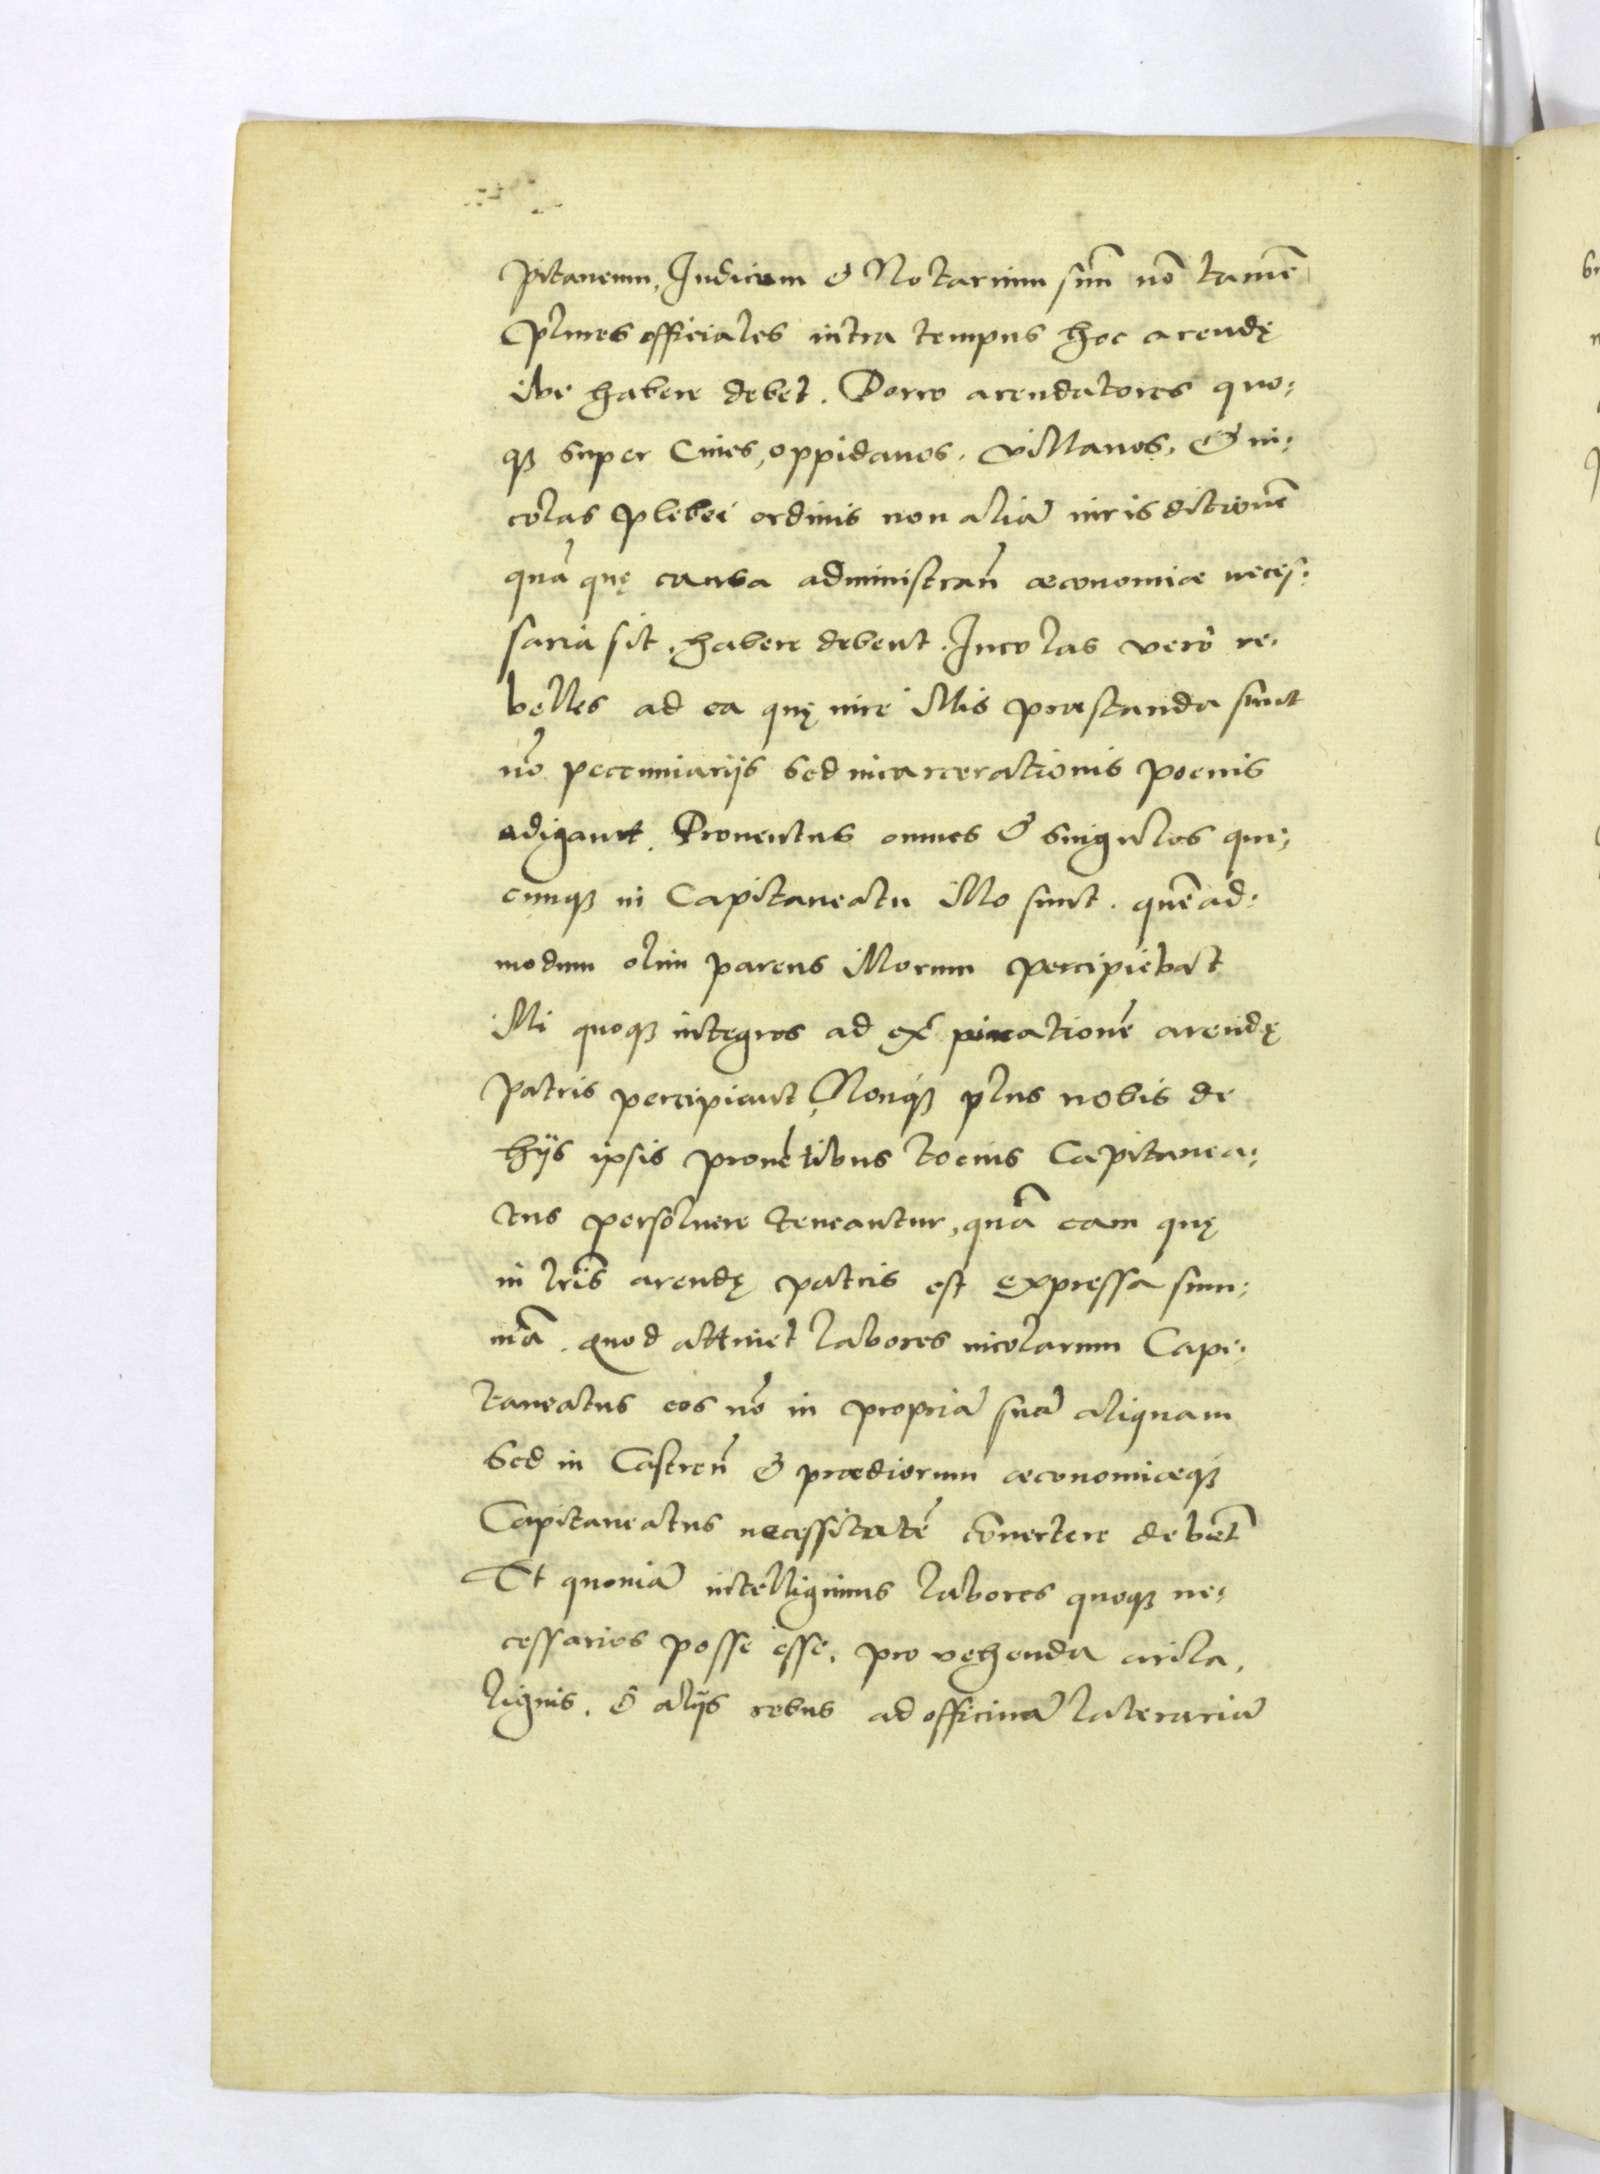 pitaneum, Iudicem & Notarium suū nō tamē
plures officiales intra tempus hoc arendę
ibi habere debet. Porro arendatores quo:
qȝ super Ciues, oppidanos, villanos, & in:
colas plebei ordinis non aliā iurisdictionē
quā quę causa administrañ œconomiæ neces:
saria sit, habere debent. Incolas verò re:
belles ad ea quę iure illis præstanda sunt
nō peccuniarijs sed incarcerationis poenis
adigant. Prouentus omnes & singulos qui:
cunqȝ in Capitaneatu illo sunt. quēad:
modum olim parens illorum percipiebat
illi quoqȝ integros ad exspirationē arendę
patris percipiant, Nonqȝ plus nobis de
hijs ipsis prouētibus tocius Capitanea:
tus persoluere teneantur, quā eam quę
in lr̄is arendę patris est expressa sum:
mā. Quod attinet labores incolarum Capi:
taneatus eos nō in propriā suā aliquam
sed in Castreñ & prædiorum œconomiæqȝ
Capitaneatus necessitatē cōuertere debēt
Et quoniā intelligimus labores quoqȝ ne:
cessarios posse esse, pro vehenda argilla,
lignis, & alijs rebus ad officinā laterariā